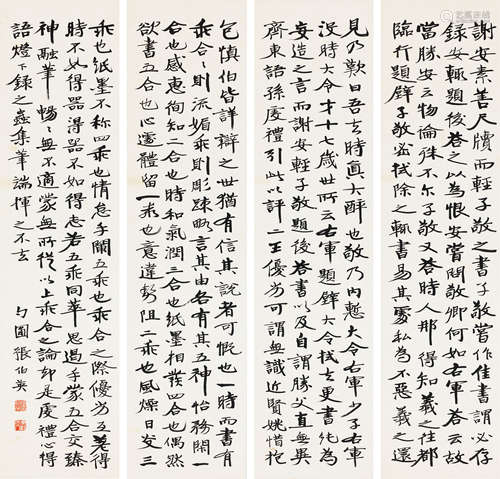 謝安素善尺牘而輕子敬之書子敬嘗作佳書謂必存
錄安輒題後答之以為恨安嘗問敬卿何如右軍答云故
當勝安云物論殊不尔子敬又答時人那得知羲之往都
臨行題壁子敬密拭除之輒書易其處私為不惡羲之還
見乃歎曰吾去時真大醉也敬乃內慙大令右軍少子右軍
沒時大令才十七歲世所云右軍題壁大令拭去更書此為
妄造之言而謝安輕子敬題後答之及自謂勝父直無異
齊東語孫虔禮引此以評二王優劣可謂無識近賢姚惜抱
包慎伯皆詳辯之世猶有信其說者可慨也一時而書有
乖合合則流媚乖則彫疎略言其由各有其五神怡務閑一
合也感惠徇知二合也時和氣潤三合也紙墨相發四合也偶然
欲書五合也心遽體留一乖也意違勢阻二乖也風燥日炎三
乖也紙墨不稱四乖也情怠手闌五乖也乖合之際優劣互差得
時不如得器得器不如得志若五乖同萃思遏手蒙五合交臻
神融筆暢暢無不適蒙無所從以上乖合之論却是虔禮心得
語燈下錄之蠡集筆端揮之不去
勺圃張伯英